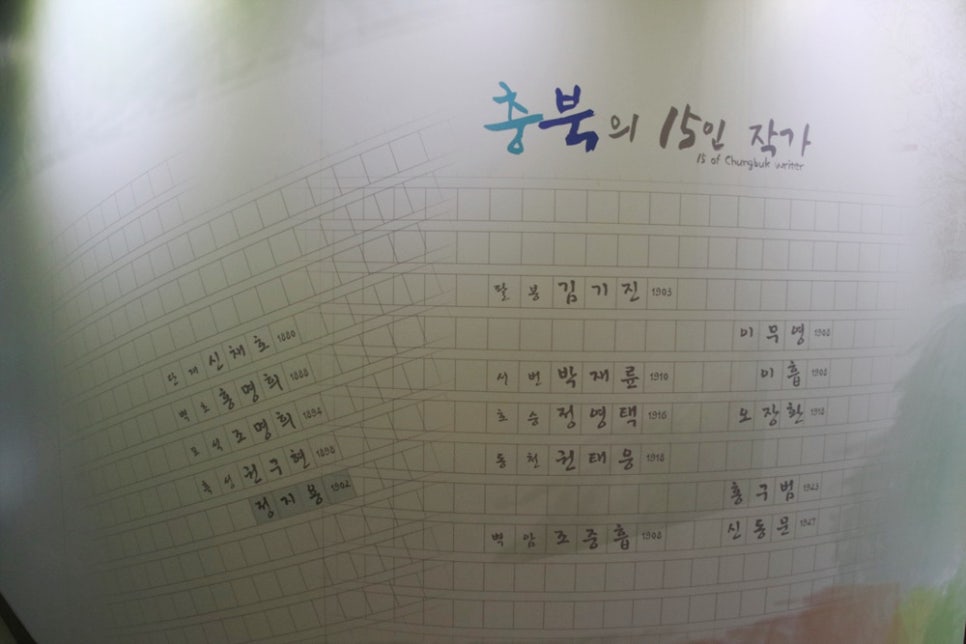 충북의 15인 작가
15 of Chungbuk writer
단재 신채호 1880
벽초 홍명희 1888
포석 조명희 1894
흑성 권구현 1898
정지용 1902
팔봉 김기진 1903
서번 박재륜 1910
초승 정영택 1916
동천 권태응 1918
벽암 조중흡 1908
이무영 1908
이흡 1908
오장환 1918
홍구범 1923
신동문 1927